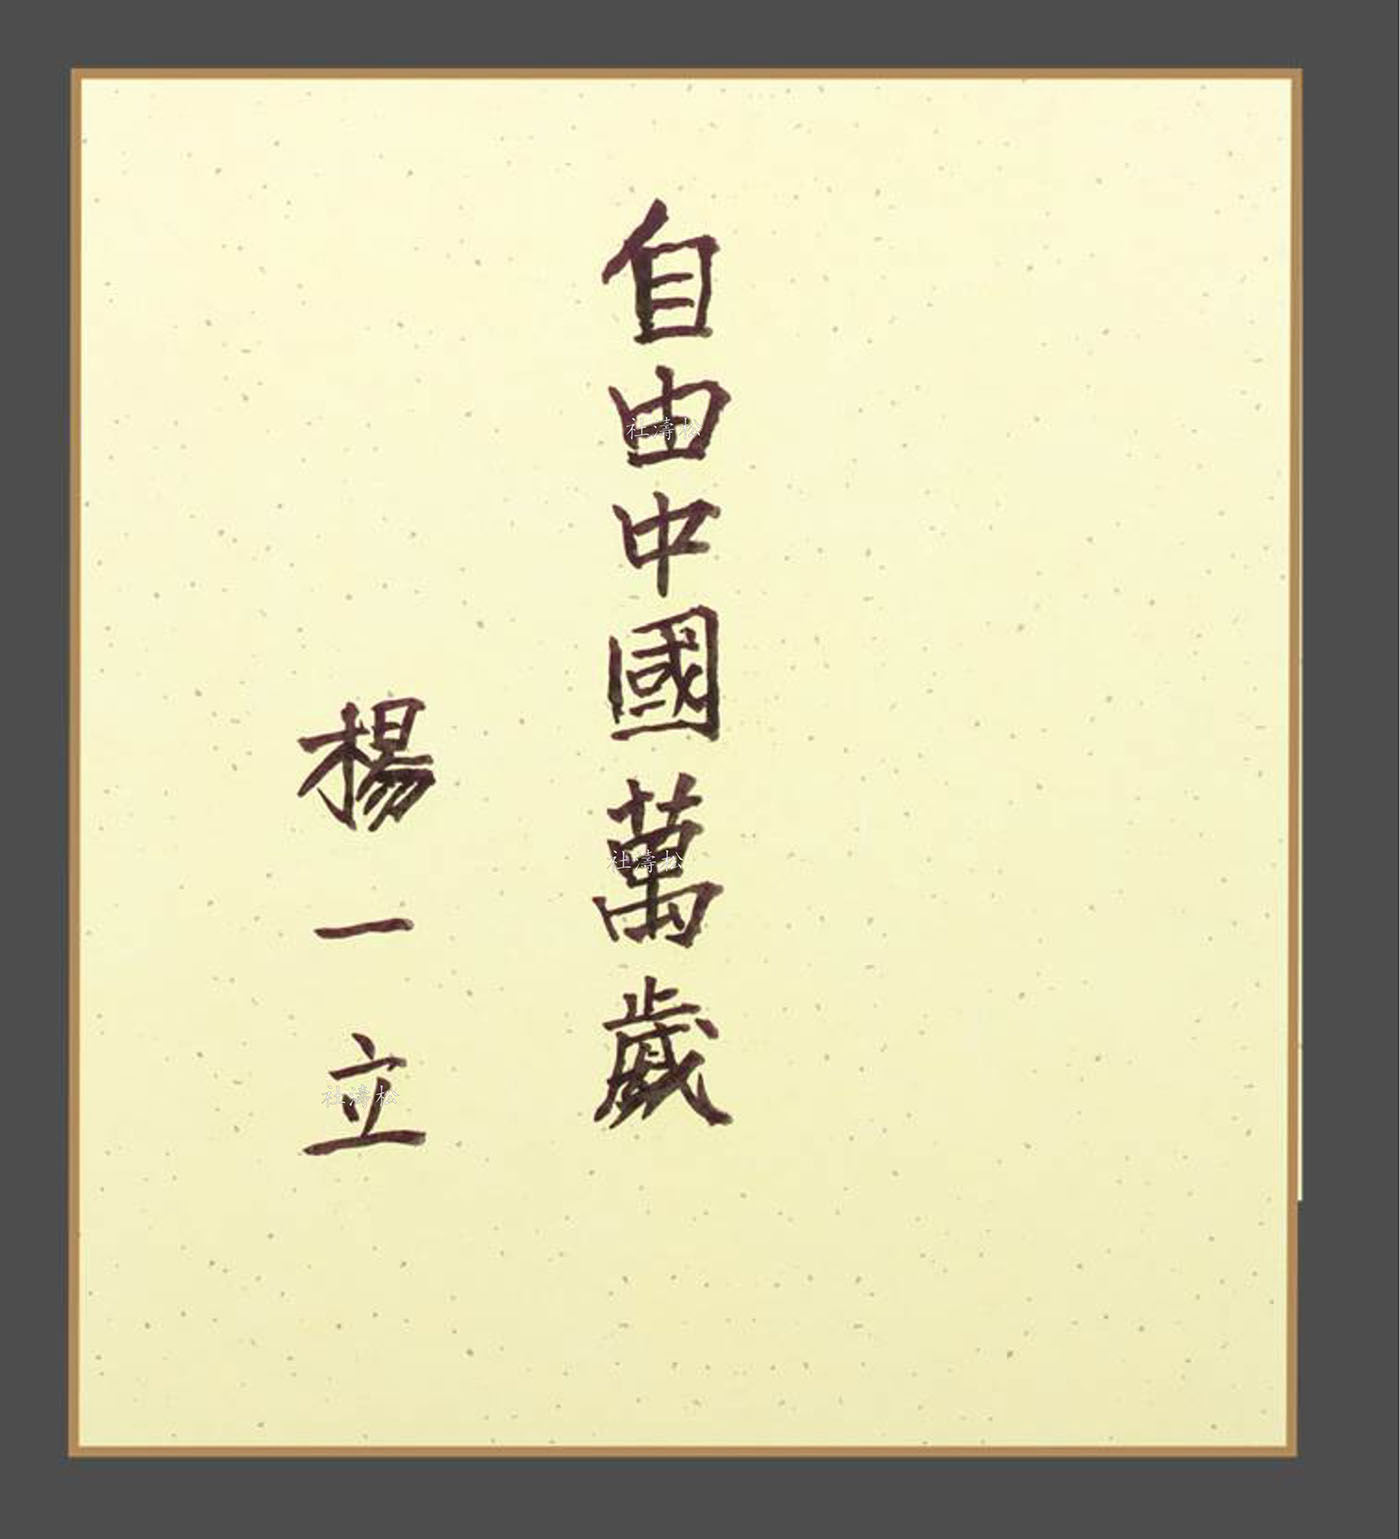 自由中國萬歲
楊一立
社濤松
社濤松
社濤松